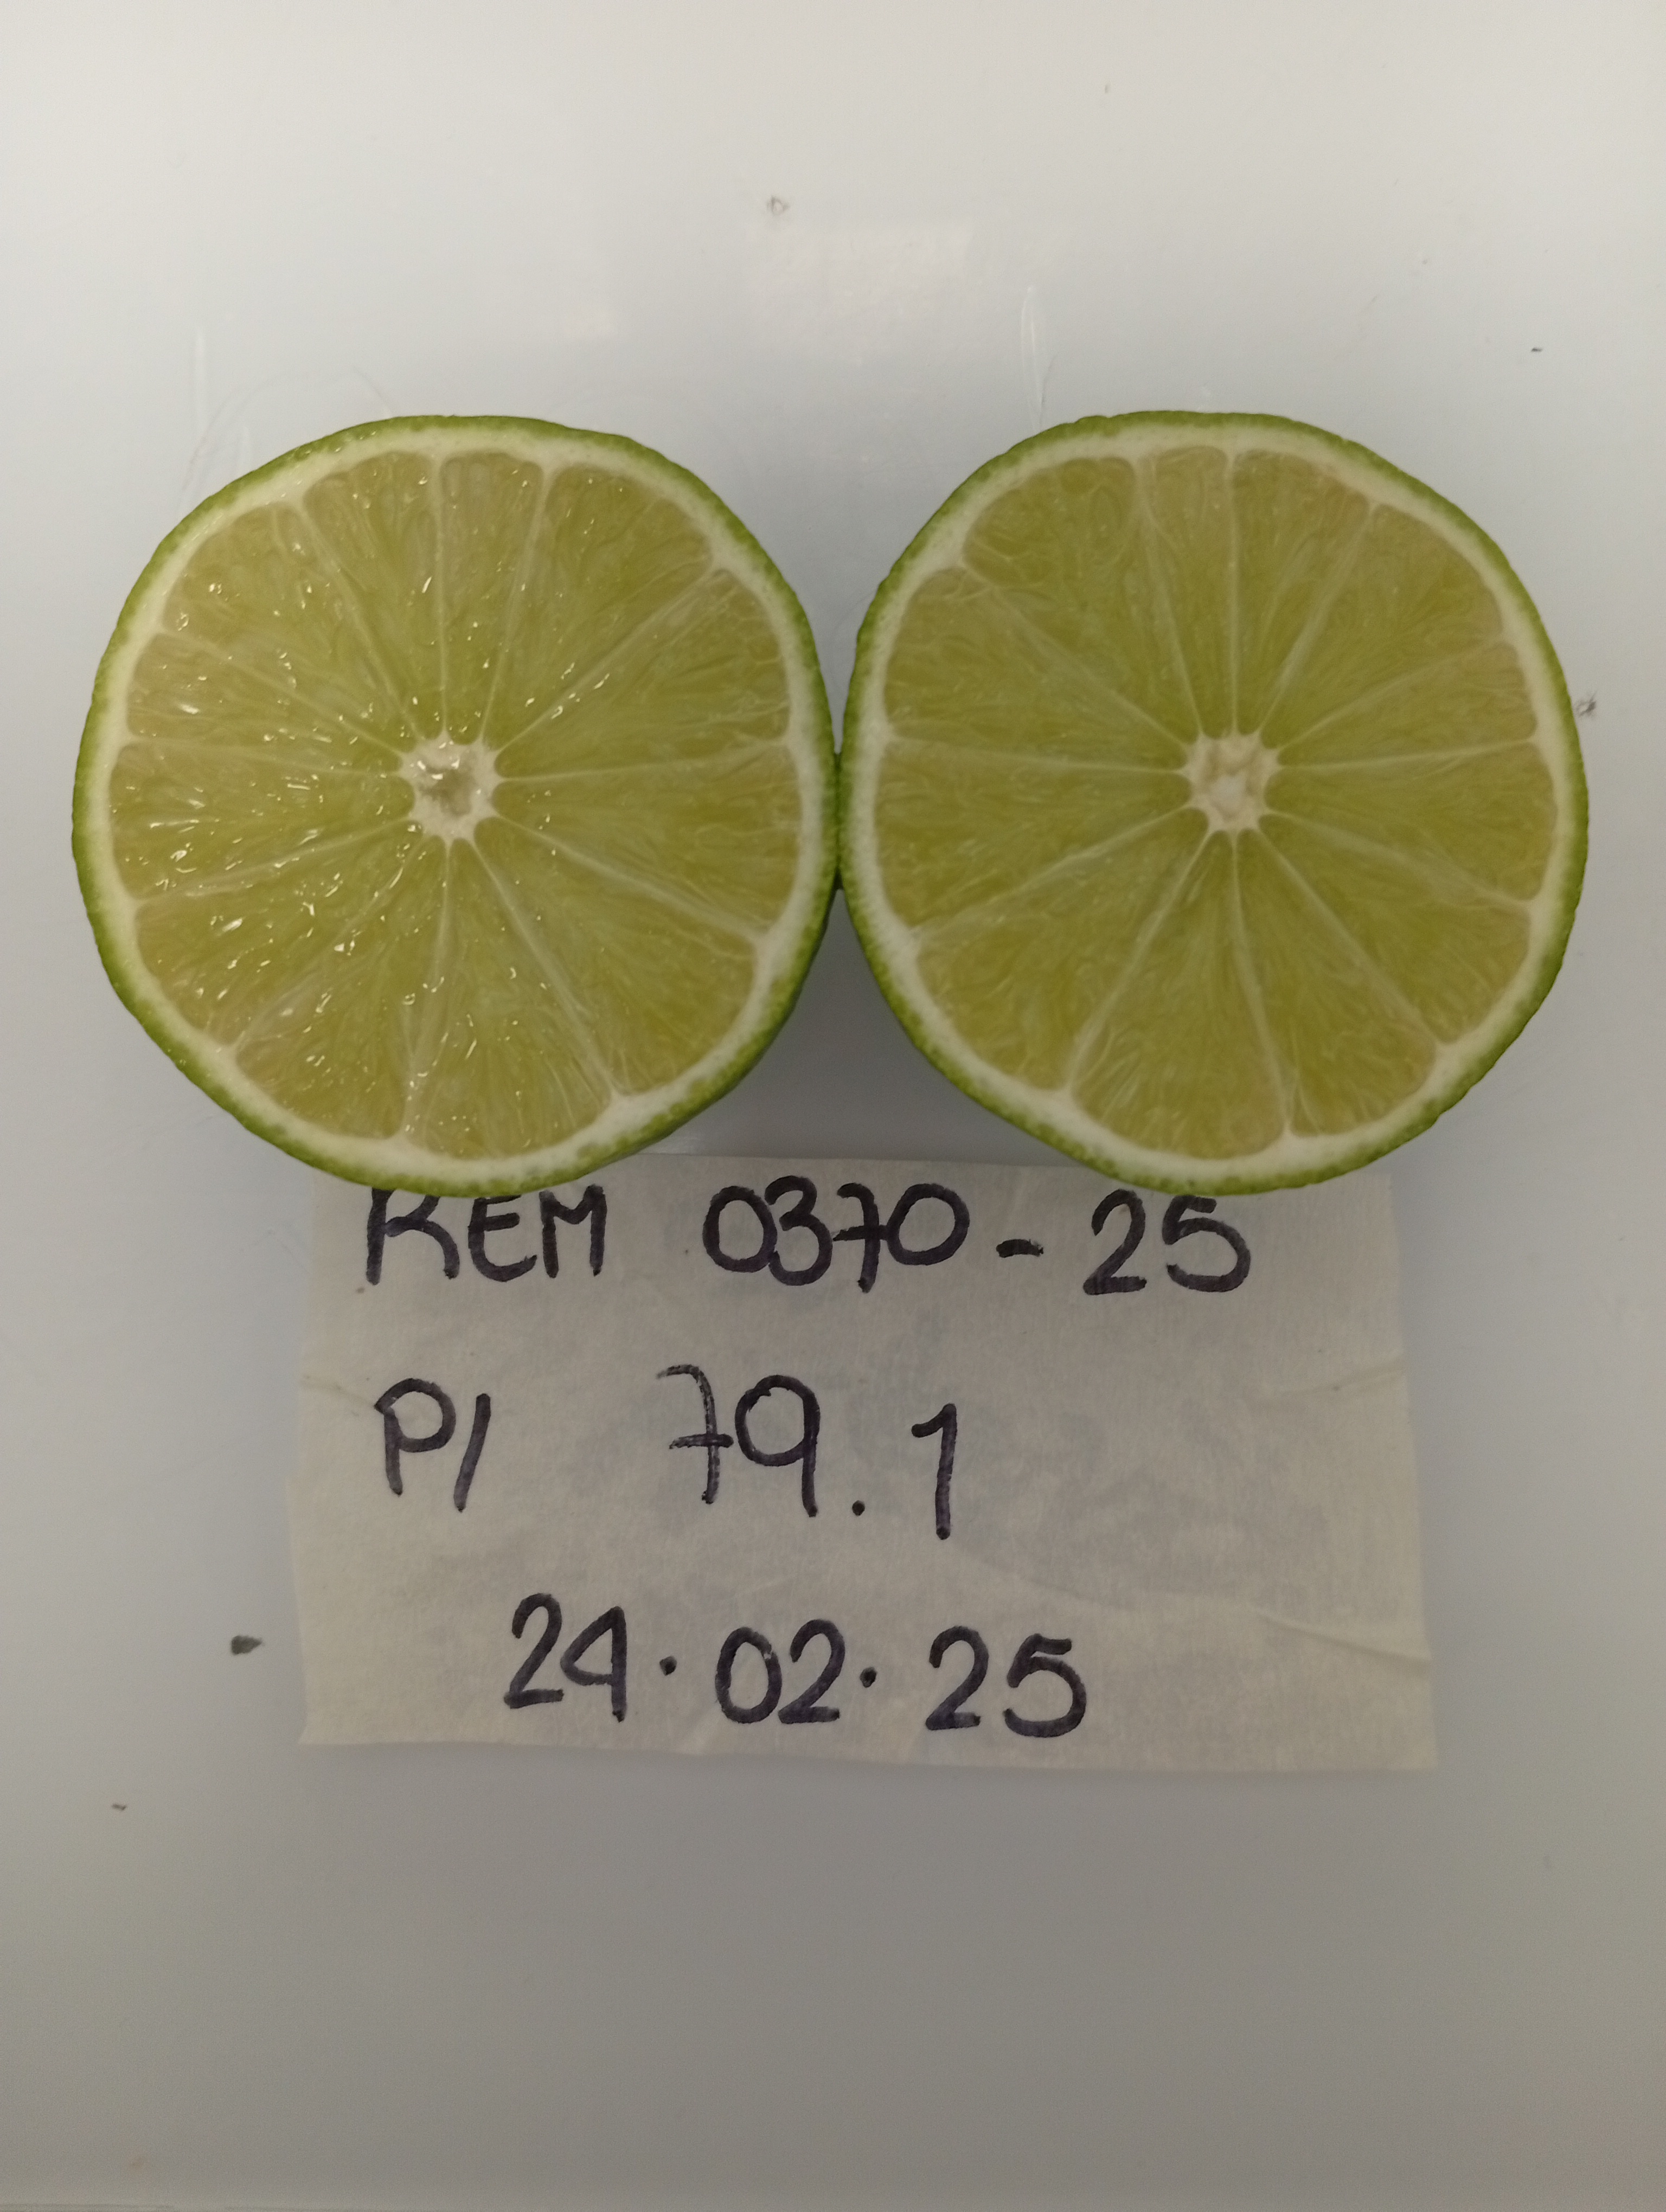 REM 0370-25
P/ 79.1
24.02.25